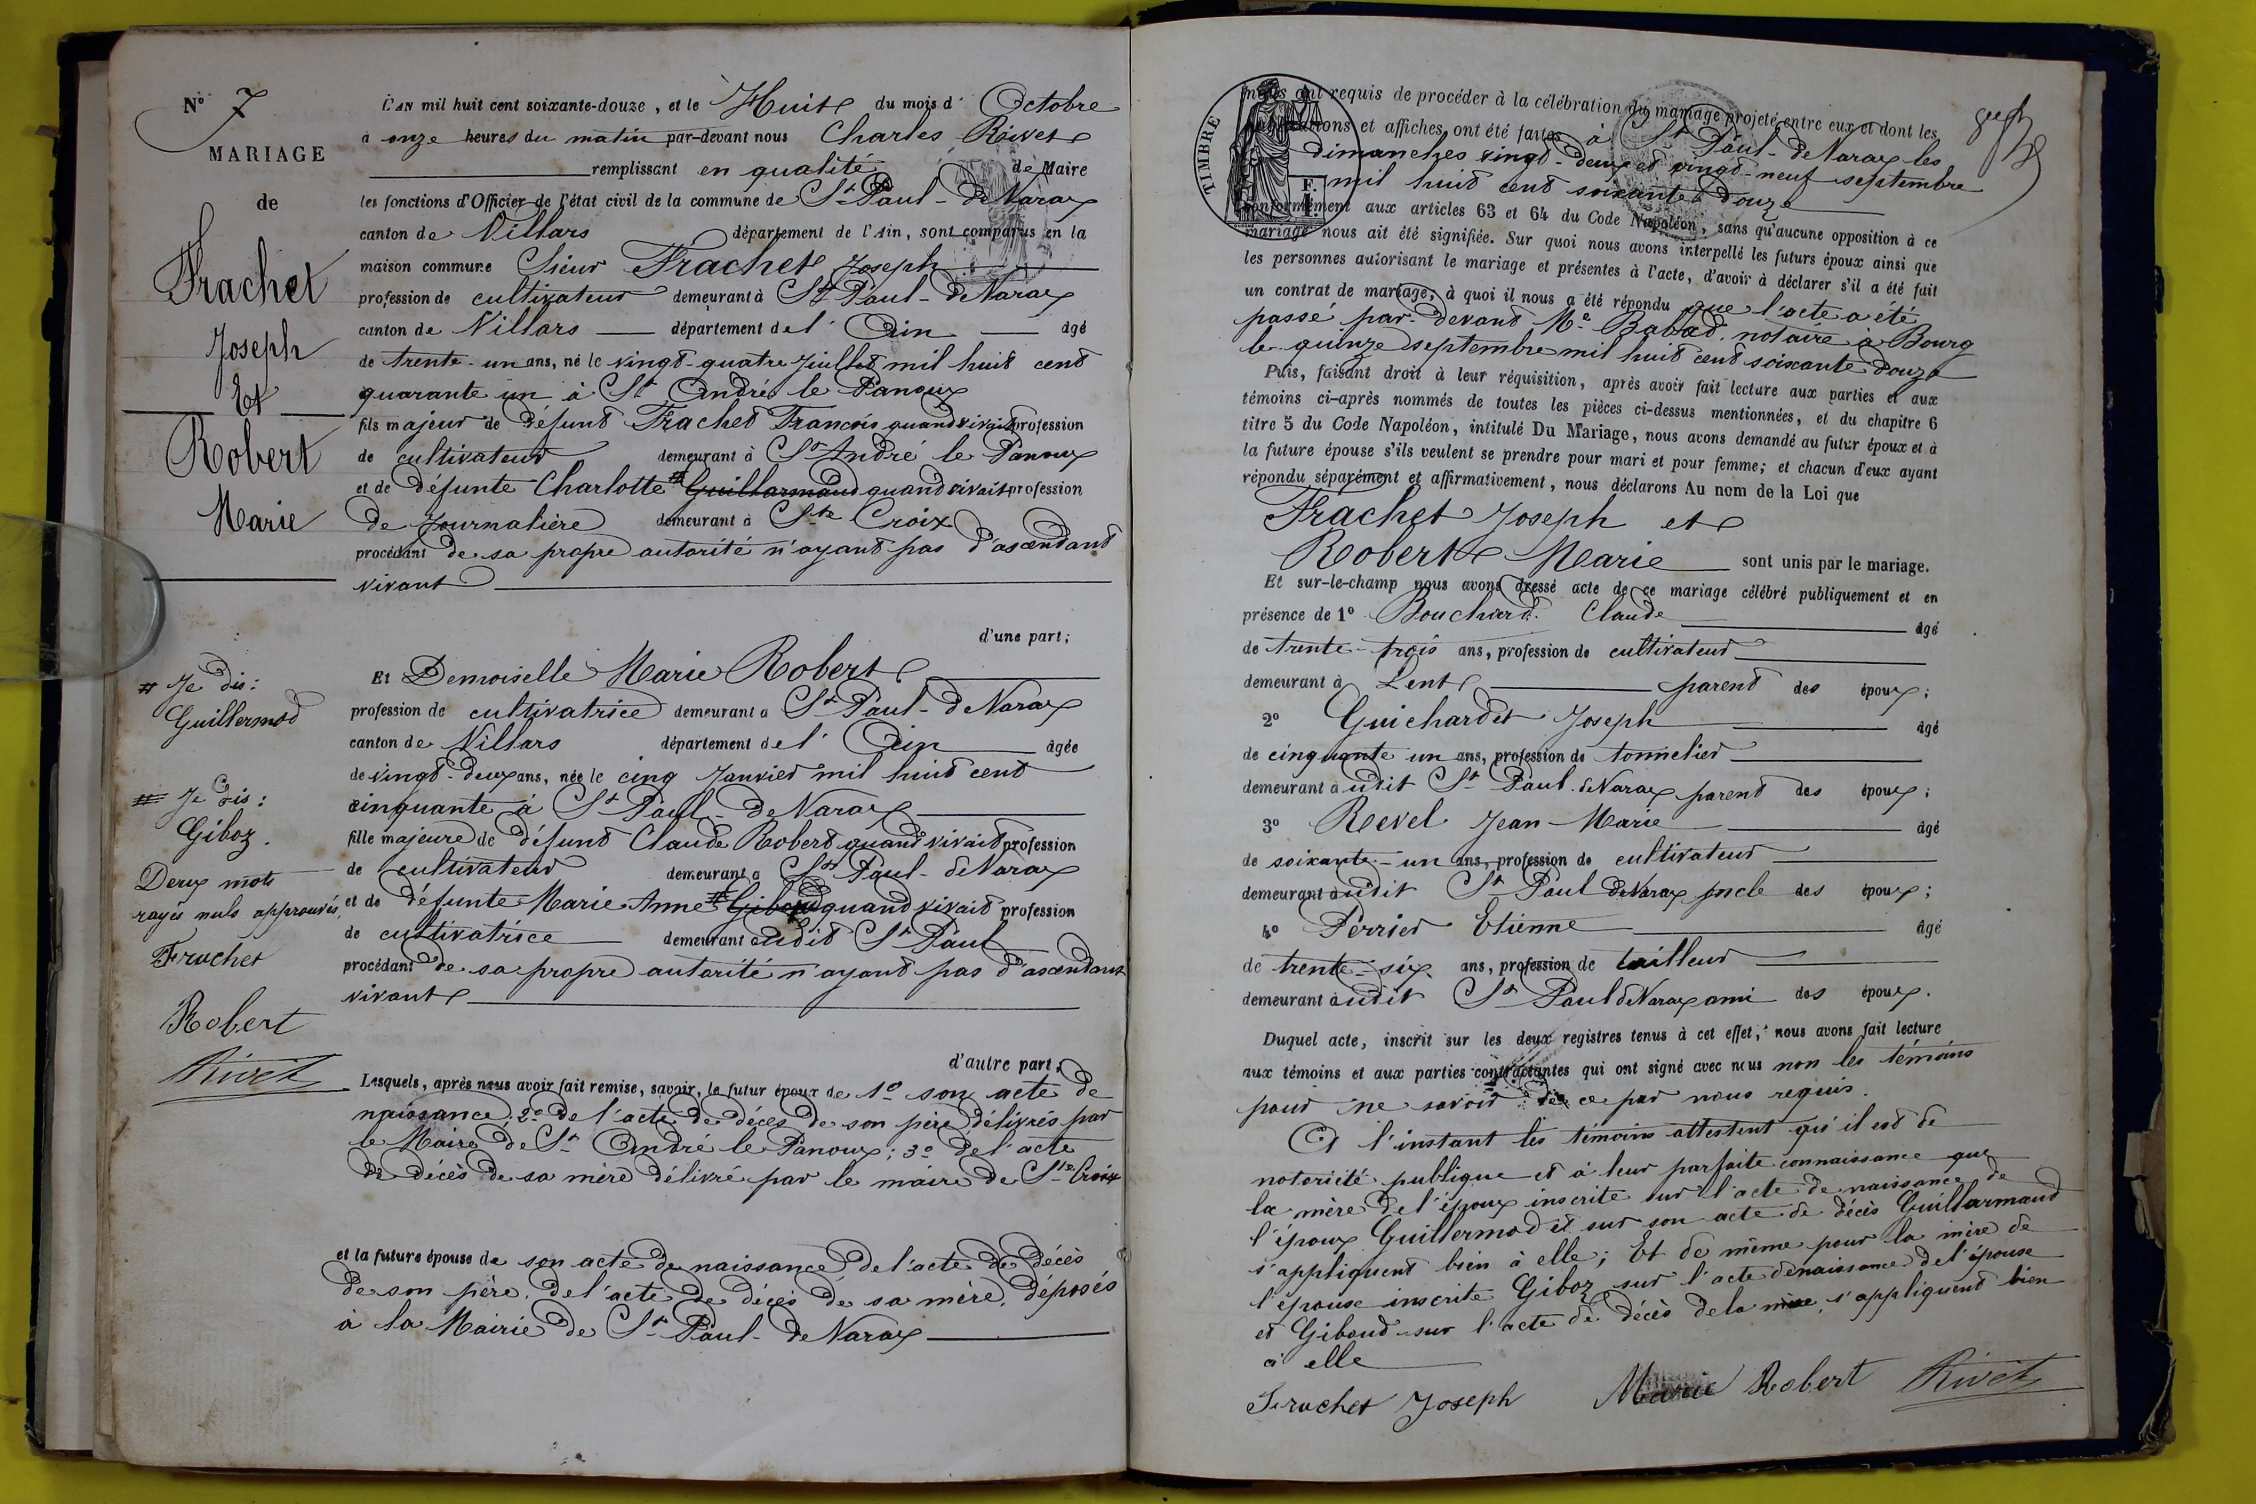 N° 7
MARIAGE
de
Frachet
Joseph
Et
Robert
Marie
# Je dis :
Guillermod
## Je dis :
Giboz.
Deux mots
rayés nuls approuvés.
Frachet
Robert
Rivet
L'AN mil huit cent soixante-douze, et le Huit du mois d' Octobre
à onze heures du matin par-devant nous Charles Rivet
remplissant en qualité de Maire
les fonctions d'Officier de l'état civil de la commune de St Paul-de Varax
canton de Villars département de l'Ain, sont comparus en la
maison commune Sieur Frachet Joseph
profession de cultivateur demeurant à St Paul-de Varax
canton de Villars département de l' Ain âgé
de trente-un ans, né le vingt-quatre Juillet mil huit cent
quarante un à St André le Panoux
fils majeur de défunt Frachet François quand vivait profession
de cultivateur demeurant à St André le Panoux
et de défunte Charlotte # Guillarmaud quand vivait profession
de journalière demeurant à Ste Croix
procédant de sa propre autorité n'ayant pas d'ascendant
vivant
d'une part ;
Et Demoiselle Marie Robert
profession de cultivatrice demeurant à St Paul-de Varax
canton de Villars département de l' Ain âgée
de vingt-deux ans, née le cinq Janvier mil huit cent
cinquante à St Paul-de Varax
fille majeure de défunt Claude Robert quand vivait profession
de cultivateur demeurant à St Paul-de Varax
et de défunte Marie Anne # Giboud quand vivait profession
de cultivatrice demeurant à udit St Paul
procédant de sa propre autorité n'ayant pas d'ascendant
vivant
d'autre part.
Lesquels, après nous avoir fait remise, savoir, le futur époux de 1° son acte de
naissance ; 2° de l'acte de décès de son père délivrés par
le Maire de St André le Panoux ; 3° de l'acte
de décès de sa mère délivré par le maire de Ste Croix
et la future épouse de son acte de naissance, de l'acte de décès
de son père, de l'acte de décès de sa mère, déposés
à la Mairie de St Paul-de Varax
TIMBRE
F.
1
nous ont requis de procéder à la célébration du mariage projeté entre eux et dont les
publications et affiches ont été faites à St Paul-de Varax les
dimanches vingt-deux et vingt-neuf septembre
mil huit cent soixante douze
conformément aux articles 63 et 64 du Code Napoléon, sans qu'aucune opposition à ce
mariage nous ait été signifiée. Sur quoi nous avons interpellé les futurs époux ainsi que
les personnes autorisant le mariage et présentes à l'acte, d'avoir à déclarer s'il a été fait
un contrat de mariage, à quoi il nous a été répondu que l'acte a été
passé par-devant Me Babad notaire à Bourg
le quinze septembre mil huit cent soixante douze
Puis, faisant droit à leur réquisition, après avoir fait lecture aux parties et aux
témoins ci-après nommés de toutes les pièces ci-dessus mentionnées, et du chapitre 6
titre 5 du Code Napoléon, intitulé Du Mariage, nous avons demandé au futur époux et à
la future épouse s'ils veulent se prendre pour mari et pour femme ; et chacun d'eux ayant
répondu séparément et affirmativement, nous déclarons Au nom de la Loi que
Frachet Joseph et
Robert Marie sont unis par le mariage.
Et sur-le-champ nous avons dressé acte de ce mariage célébré publiquement et en
présence de 1° Bouchard Claude âgé
de trente-trois ans, profession de cultivateur
demeurant à Lent parent des époux ;
2° Guichardet Joseph âgé
de cinquante un ans, profession de tonnelier
demeurant à udit St Paul-de Varax parent des époux ;
3° Revel Jean-Marie âgé
de soixante-un ans, profession de cultivateur
demeurant à udit St Paul de Varax oncle des époux ;
4° Perrier Etienne âgé
de trente-six ans, profession de tailleur
demeurant à udit St Paul de Varax ami des époux.
Duquel acte, inscrit sur les deux registres tenus à cet effet, nous avons fait lecture
aux témoins et aux parties contractantes qui ont signé avec nous non les témoins
pour ne savoir de ce par nous requis.
Et à l'instant les témoins attestent qu'il est de
notoriété publique et à leur parfaite connaissance que
la mère de l'époux inscrite sur l'acte de naissance de
l'époux Guillermod et sur son acte de décès Guillarmaud
s'appliquent bien à elle ; Et de même pour la mère de
l'épouse inscrite Giboz sur l'acte de naissance de l'épouse
et Giboud sur l'acte de décès de la mère, s'appliquent bien
à elle
Frachet Joseph Marie Robert Rivet